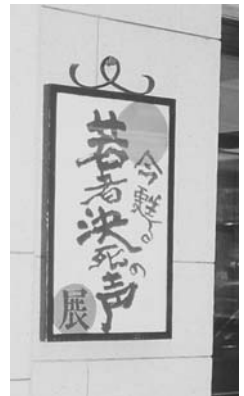 今甦る
若者決死の声
展